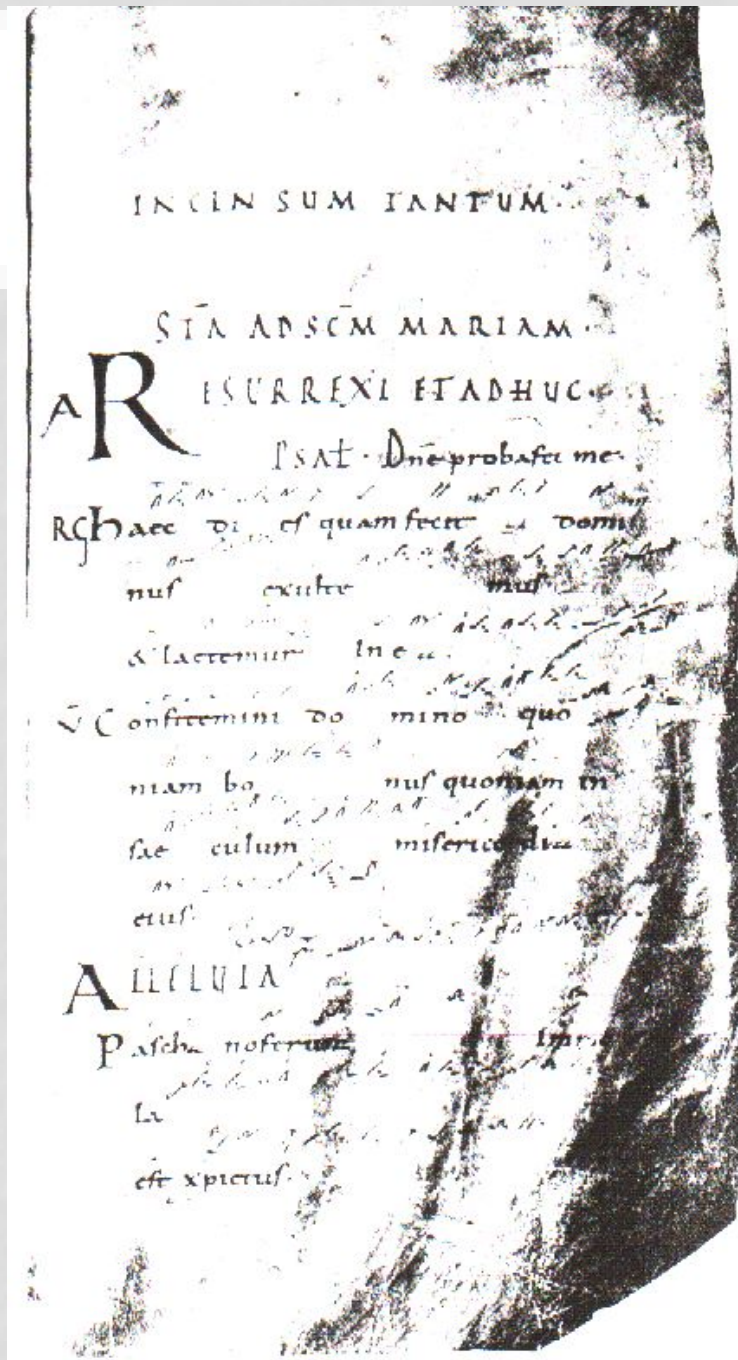 IN CIN SUM TANTUM.
STĀ AD SCM̄ MARIAM.
A RESURREXI ET ADHUC.
PSAL̄. Dn̄e probasti me.
RG Haec di es quam fecit domi
nus exulte mus
& laetemur In e o.
V̄ Confitemini do mino quō
niam bo nus quoniam in
sae culum misericordia
eius.
ALLELUIA
Pascha nostrum Immo
la
est xpictus.